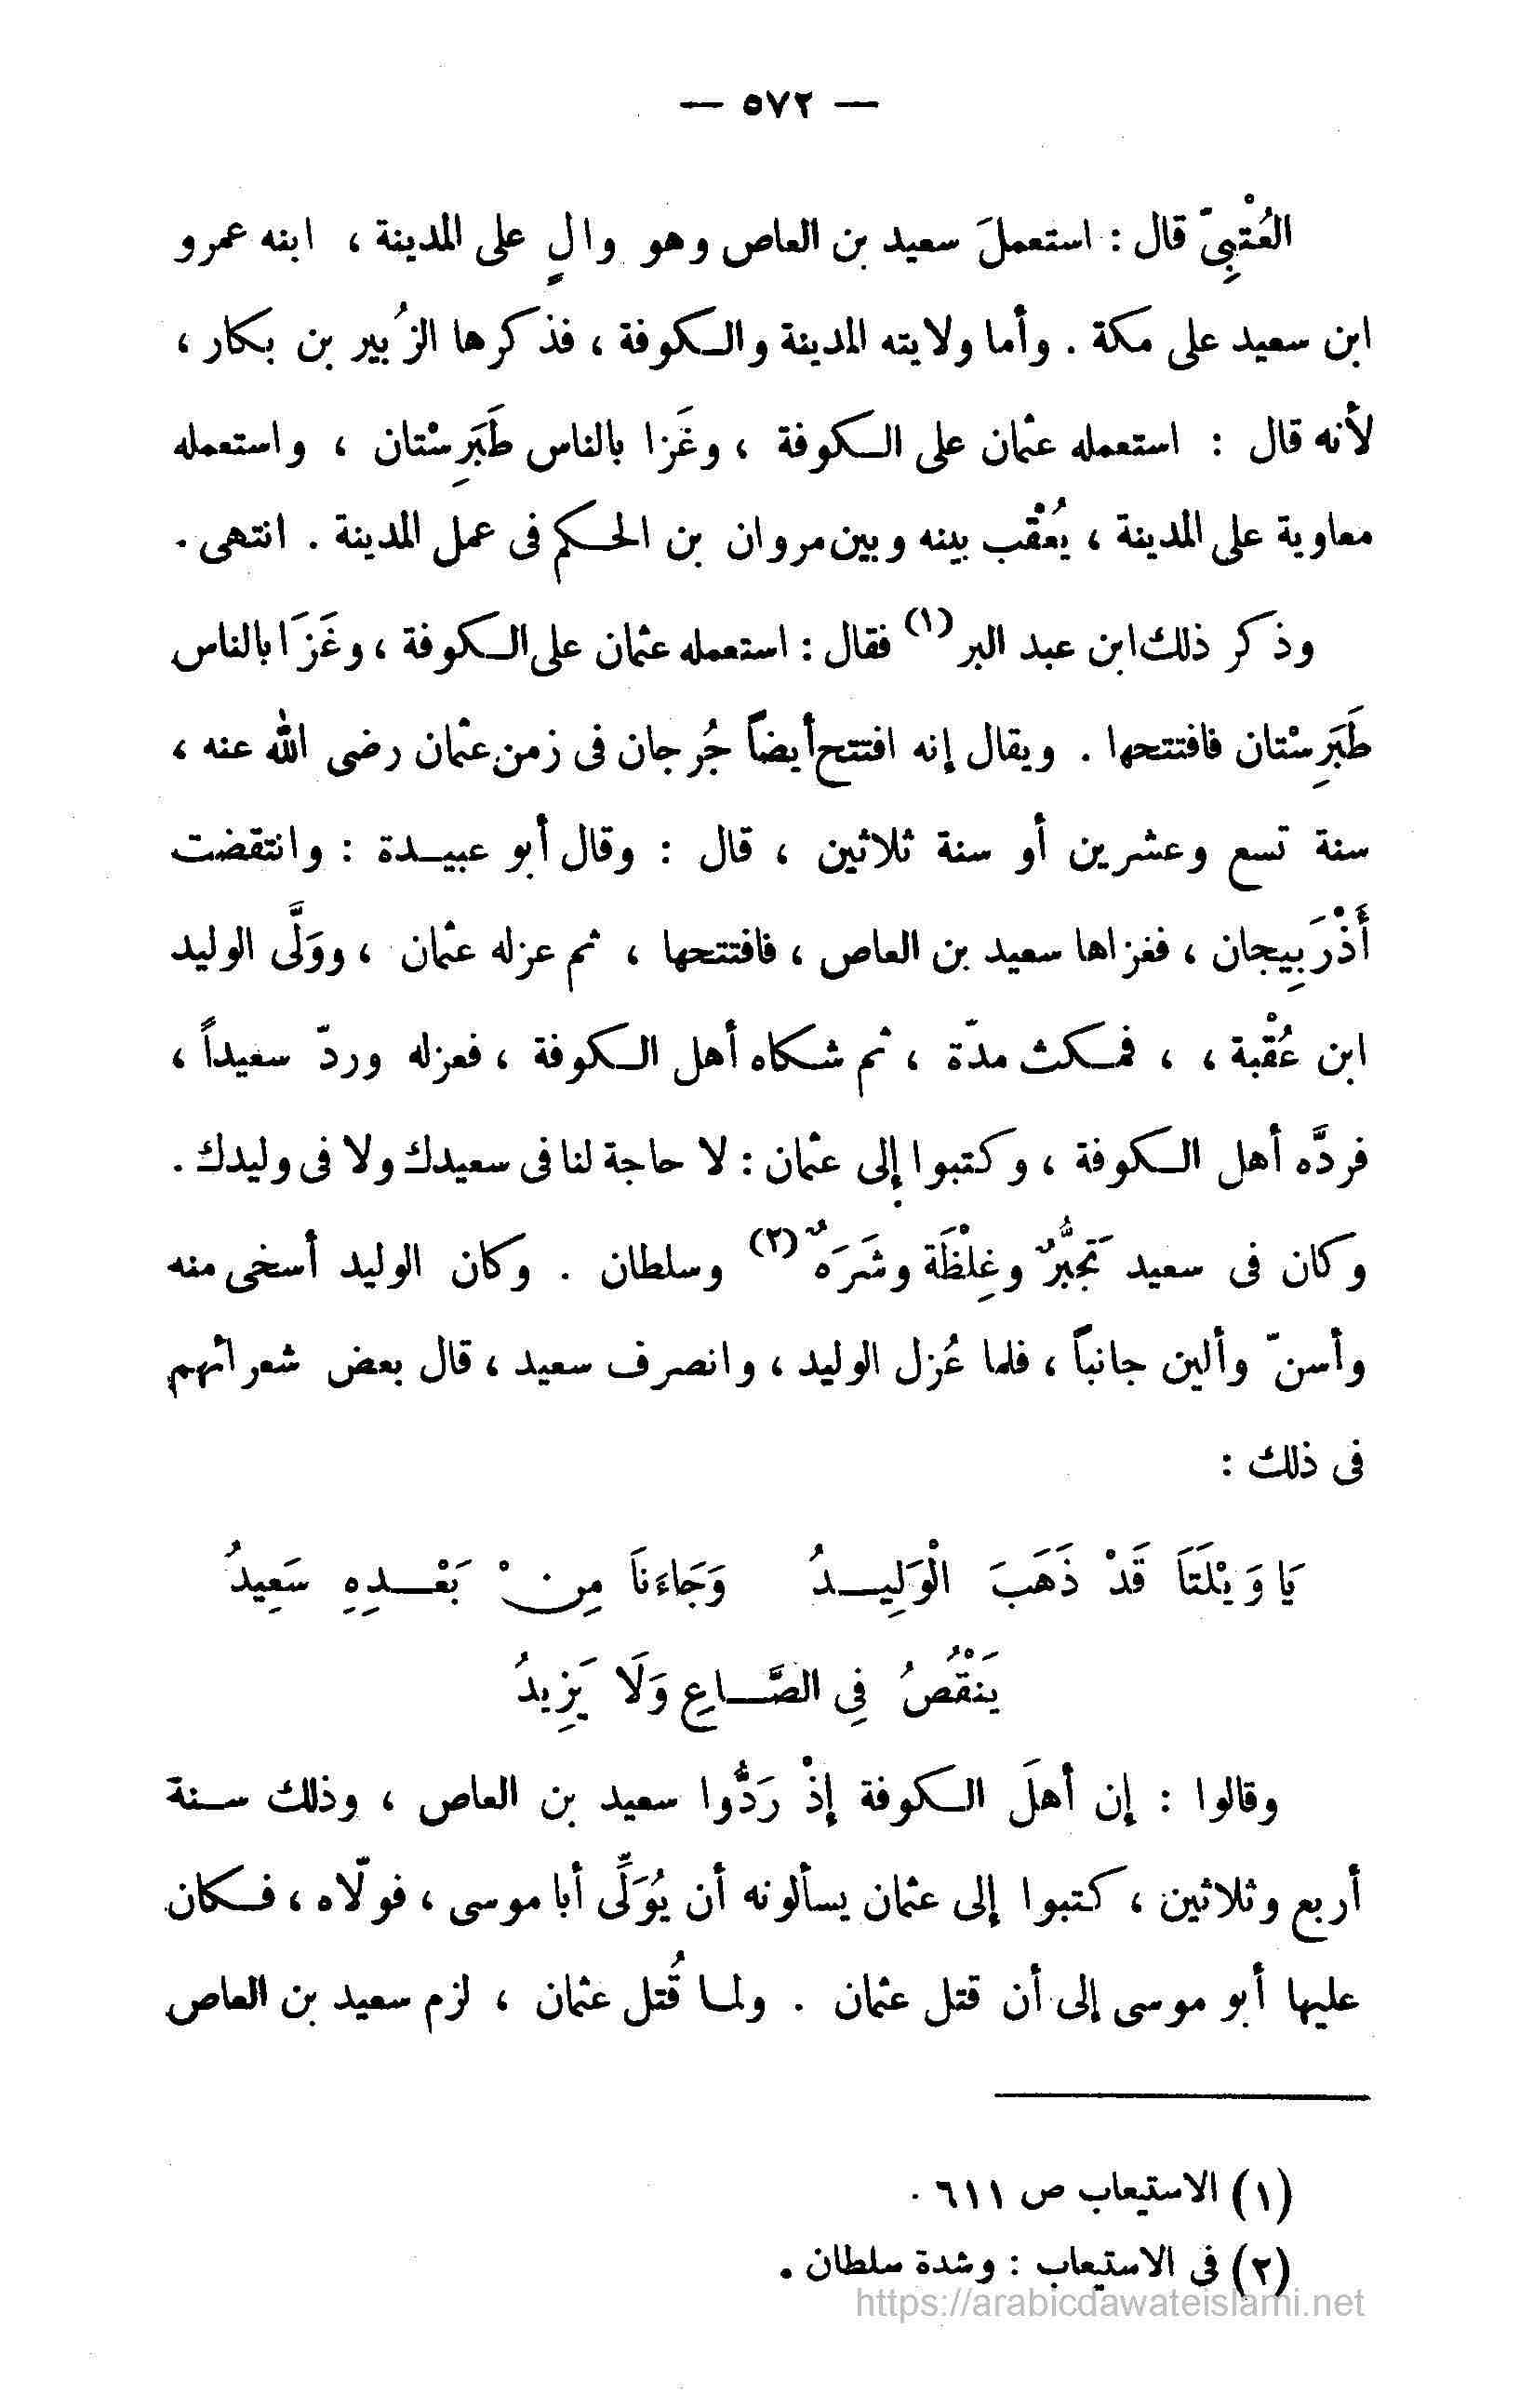 — ٥٧٢ —
العُتْبِىّ قال : استعملَ سعيد بن العاص وهو والٍ على المدينة ، ابنه عمرو
ابن سعيد على مكة . وأما ولايته المدينة والكوفة ، فذكرها الزُبير بن بكار ،
لأنه قال : استعمله عثمان على الكوفة ، وغَزا بالناس طَبَرِسْتان ، واستعمله
معاوية على المدينة ، يُعْقب بينه وبين مروان بن الحكم فى عمل المدينة . انتهى .
وذكر ذلك ابن عبد البر (١) فقال : استعمله عثمان على الكوفة ، وغَزَا بالناس
طَبَرِسْتان فافتتحها . ويقال إنه افتتح أيضاً جُرجان فى زمن عثمان رضى الله عنه ،
سنة تسع وعشرين أو سنة ثلاثين ، قال : وقال أبو عبيدة : وانتقضت
أَذْرَبِيجان ، فغزاها سعيد بن العاص ، فافتتحها ، ثم عزله عثمان ، ووَلَّى الوليد
ابن عُقْبة ، ، فمكث مدّة ، ثم شكاه أهل الكوفة ، فعزله وردّ سعيداً ،
فردَّه أهل الكوفة ، وكتبوا إلى عثمان : لا حاجة لنا فى سعيدك ولا فى وليدك .
وكان فى سعيد تَجبُّرٌ وغِلْظَة وشَرَهٌ (٢) وسلطان . وكان الوليد أسخى منه
وأسنّ وألين جانباً ، فلما عُزل الوليد ، وانصرف سعيد ، قال بعض شعرائهم
فى ذلك :
يَا وَيْلَتَا قَدْ ذَهَبَ الْوَلِيدُ وَجَاءَنَا مِنْ بَعْدِهِ سَعِيدُ
يَنْقُصُ فِى الصَّاعِ وَلَا يَزِيدُ
وقالوا : إن أهلَ الكوفة إذْ رَدُّوا سعيد بن العاص ، وذلك سنة
أربع وثلاثين ، كتبوا إلى عثمان يسألونه أن يُوَلِّى أبا موسى ، فولّاه ، فكان
عليها أبو موسى إلى أن قتل عثمان . ولما قُتل عثمان ، لزم سعيد بن العاص
(١) الاستيعاب ص ٦١١ .
(٢) فى الاستيعاب : وشدة سلطان .
https://arabicdawateislami.net